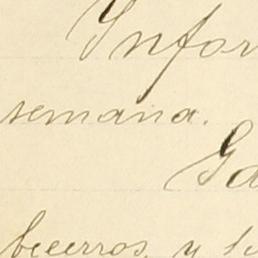 Infor
semana.
Ga
becerros, y